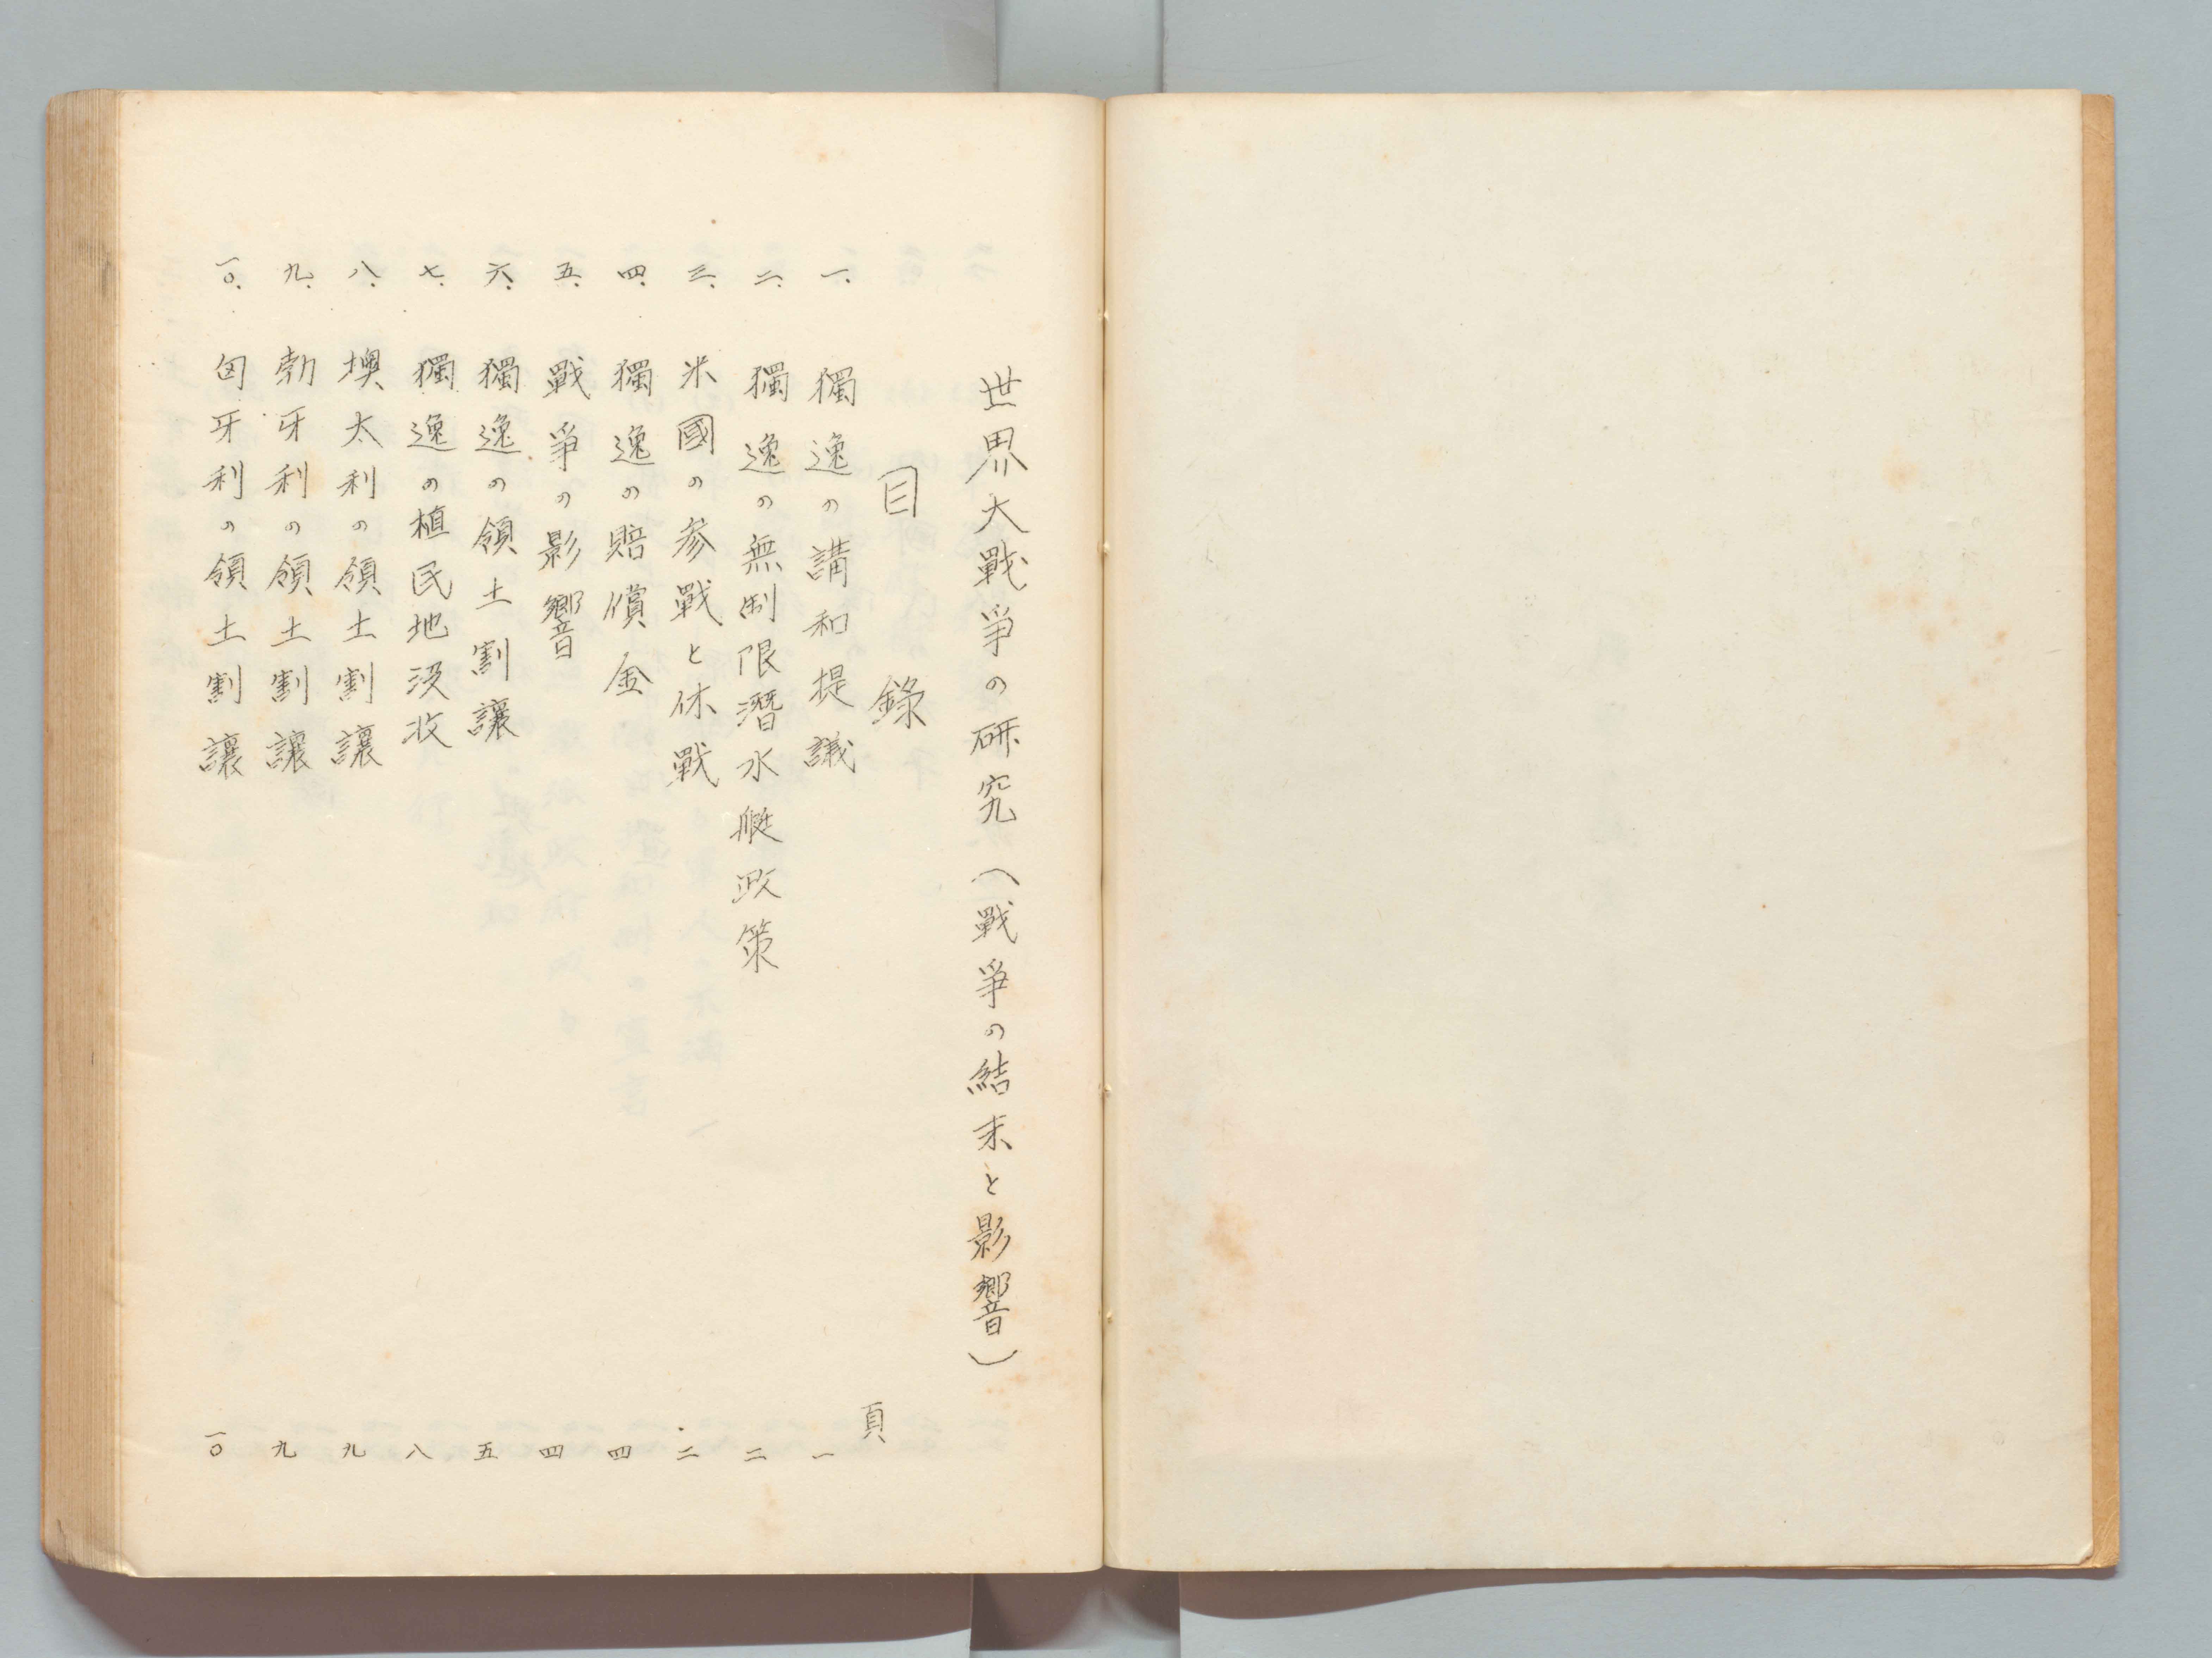 世界大戰爭の研究（戰爭の結末と影響）
目錄
頁
一、獨逸の講和提議 一
二、獨逸の無制限潛水艇政策 二
三、米國の参戰と休戰 二
四、獨逸の賠償金 四
五、戰爭の影響 四
六、獨逸の領土割讓 五
七、獨逸の植民地没收 八
八、墺太利の領土割讓 九
九、勃牙利の領土割讓 九
一〇、匈牙利の領土割讓 一〇